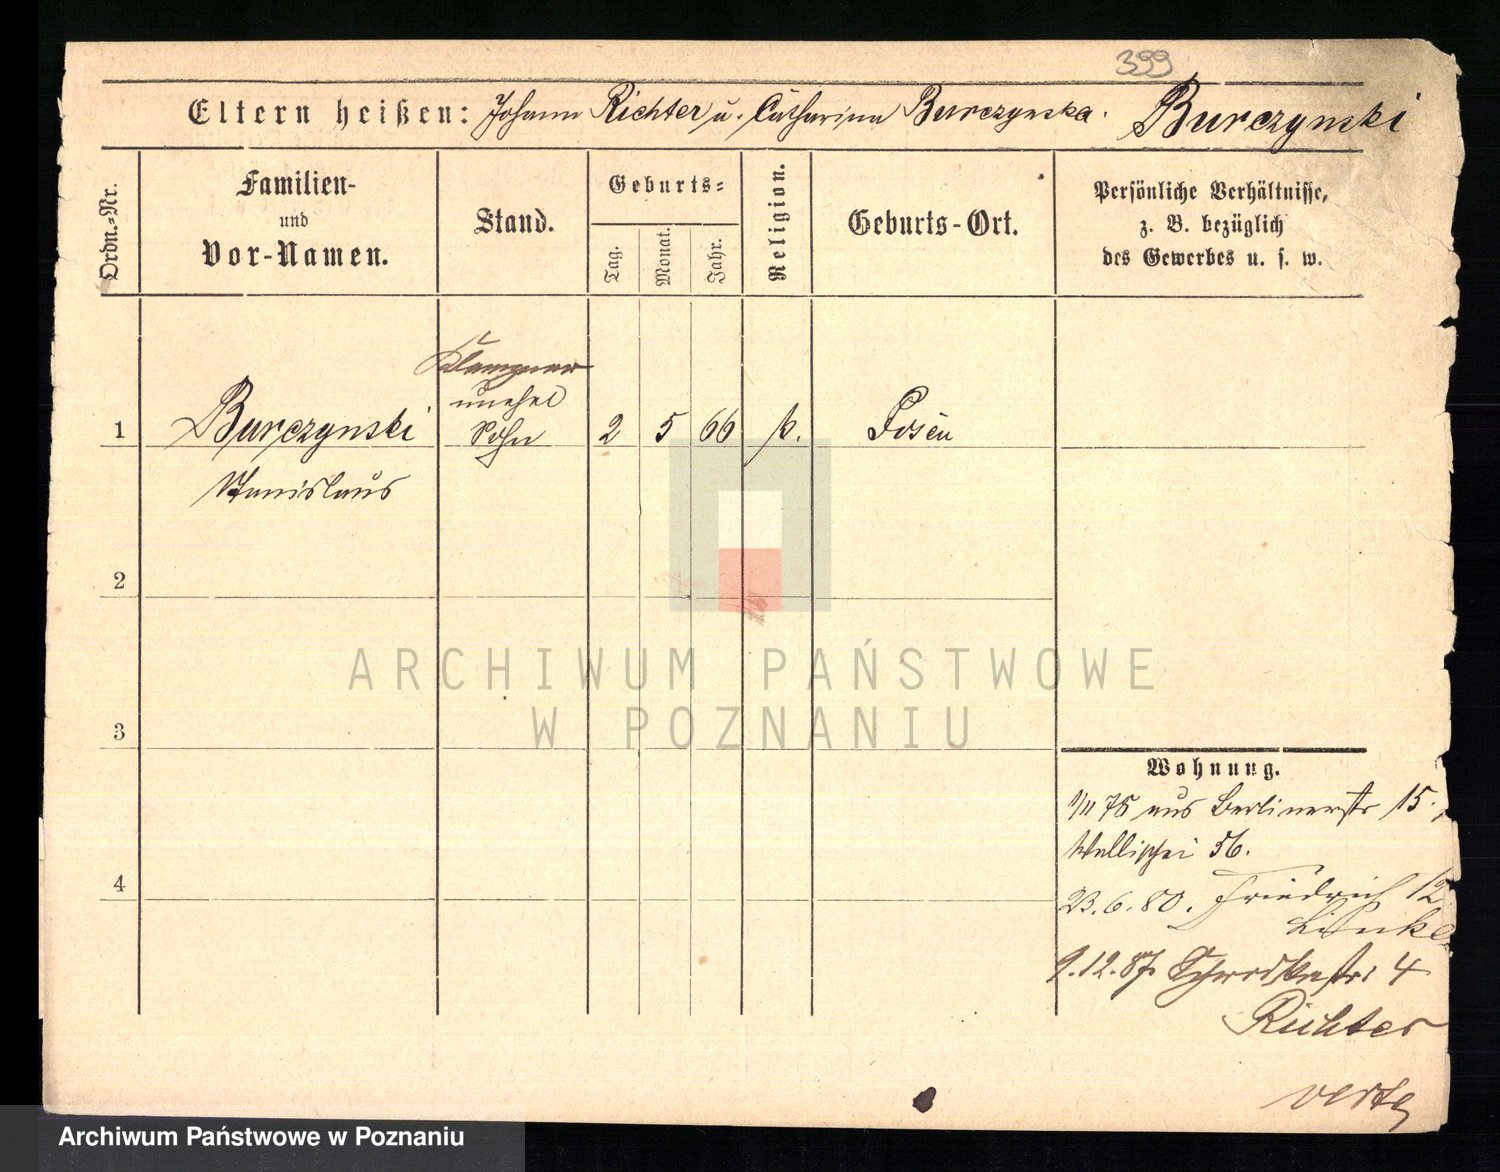 399
Eltern heißen: Johann Richter u. Catharina Burczynska. Burczynski
Ordn.-Nr.
Familien-
und
Vor-Namen.
Stand.
Geburts-
Tag.
Monat.
Jahr.
Religion.
Geburts-Ort.
Persönliche Verhältnisse,
z. B. bezüglich
des Gewerbes u. s. w.
Klempner
unehel
1 Burczynski Sohn 2 5 66 k. Posen
Stanislaus
2
3
4
Wohnung.
1/11 78 aus Berlinerstr 15.
Wallischei 56.
23.6.80. Friedrich 12
Linke
9.12.87. 4
Richter
verte
ARCHIWUM PAŃSTWOWE
W POZNANIU
Archiwum Państwowe w Poznaniu